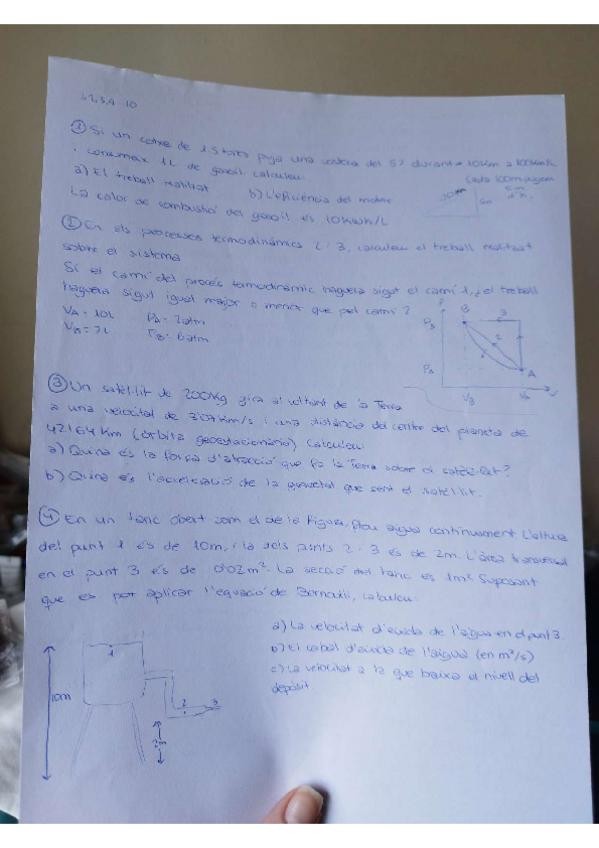 1,2,3,4 - 10
① Si un cotxe de 1,5 tones puja una costera del 5% durant 10km a 100km/h
i consumeix 1L de gasoil. calculeu:
a) El treball realitzat b) L'eficiència del motor
Cada 100m pugem 5m
10km 5m
La calor de combustió del gasoil és 10kWh/L
② En els processos termodinàmics 2 i 3, calculeu el treball realitzat
sobre el sistema
Si el camí del procés termodinàmic haguera sigut el camí 1, ¿el treball
haguera sigut igual major o menor que pel camí 2
VA = 10L PA = 2atm
VB = 2L PB = 6atm
P B 3
PB
2
1
PA A
VB VA V
③ Un satèl·lit de 200kg gira al voltant de la Terra
a una velocitat de 3'07km/s i una distància del centre del planeta de
42164km (òrbita geoestacionària) Calculeu
a) Quina és la força d'atracció que fa la Terra sobre el satèl·lit?
b) Quina és l'acceleració de la gravetat que sent el satèl·lit.
④ En un tanc obert com el de la figura, flou aigua contínuament L'altura
del punt 1 és de 10m, i la dels punts 2 i 3 és de 2m. L'àrea transversal
en el punt 3 és de 0'02m². La secció del tanc es 1m² Suposant
que es pot aplicar l'equació de Bernoulli, calculeu:
a) La velocitat d'eixida de l'aigua en el punt 3.
b) El cabal d'eixida de l'aigua (en m³/s)
c) La velocitat a la que baixa el nivell del
depòsit
1
10m
2 3
2m